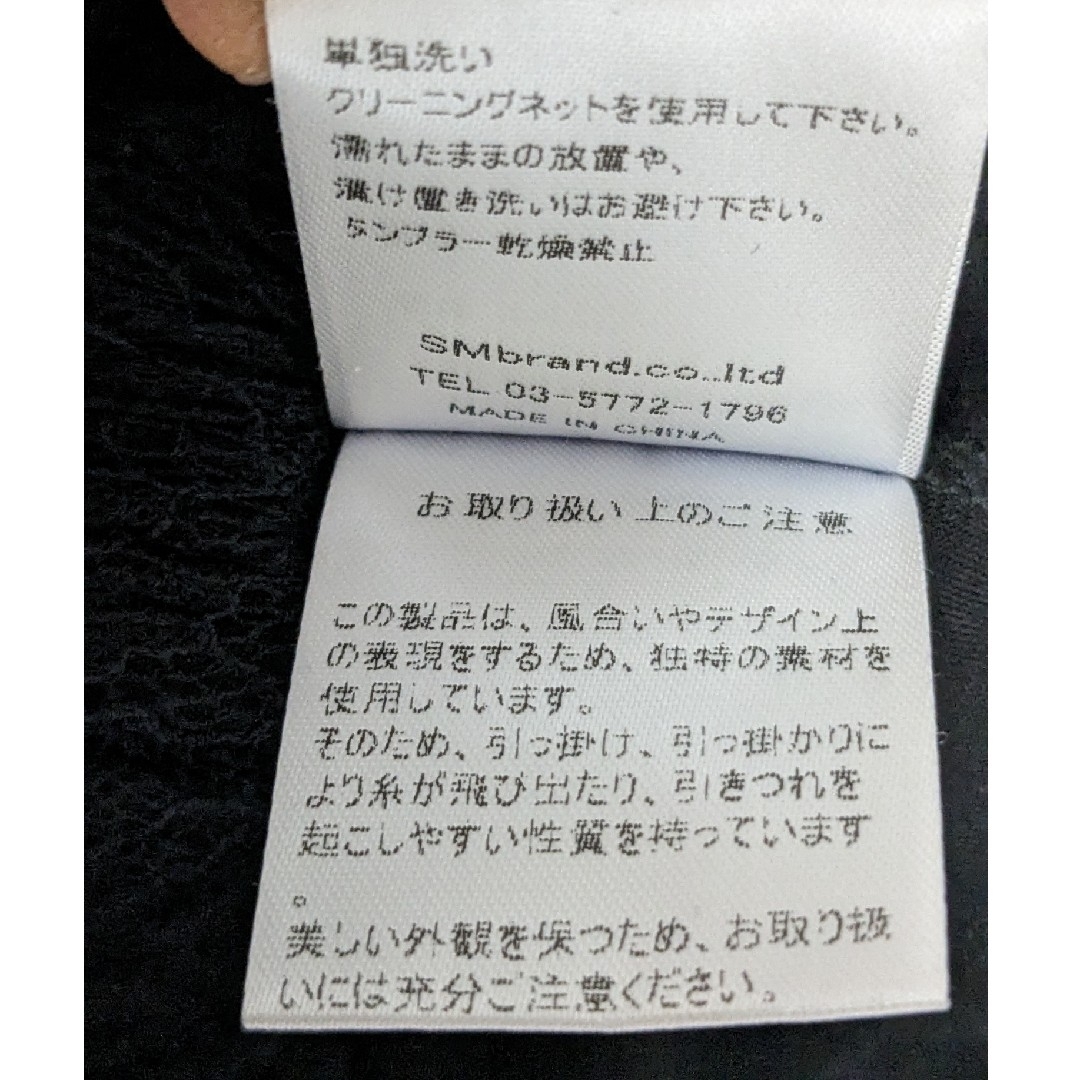 単独洗い
クリーニングネットを使用して下さい。
濡れたままの放置や、
漬け置き洗いはお避け下さい。
タンブラー乾燥禁止
SMbrand.co.,ltd
TEL 03-5772-1796
MADE IN CHINA
お取り扱い上のご注意
この製品は、風合いやデザイン上
の表現をするため、独特の素材を
使用しています。
そのため、引っ掛け、引っ掛かりに
より糸が飛び出たり、引きつれを
起こしやすい性質を持っています
。
美しい外観を保つため、お取り扱
いには充分ご注意ください。